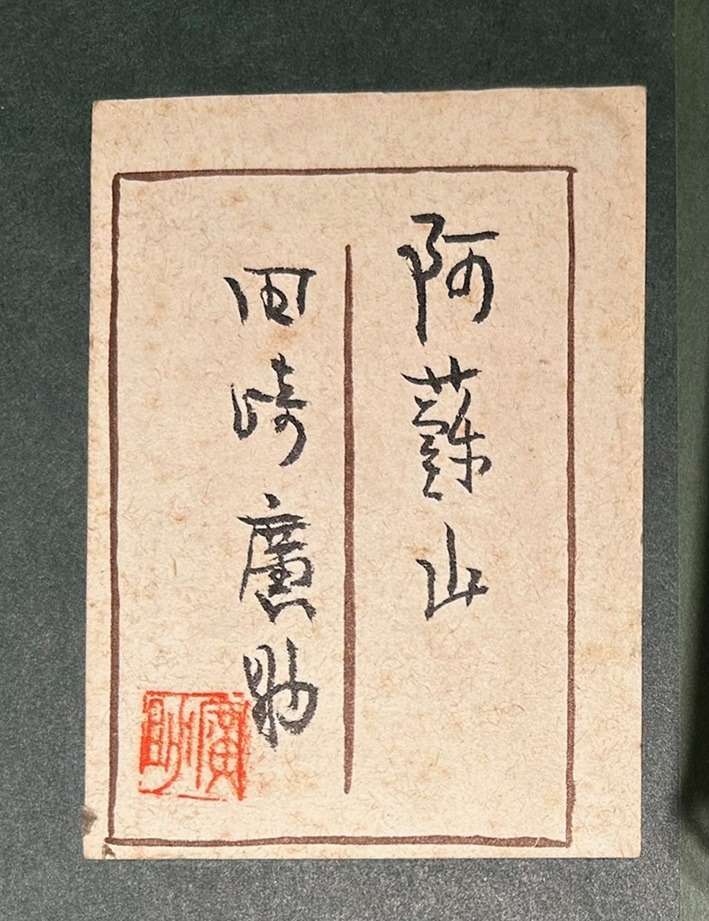 阿蘇山
田崎廣助
廣助